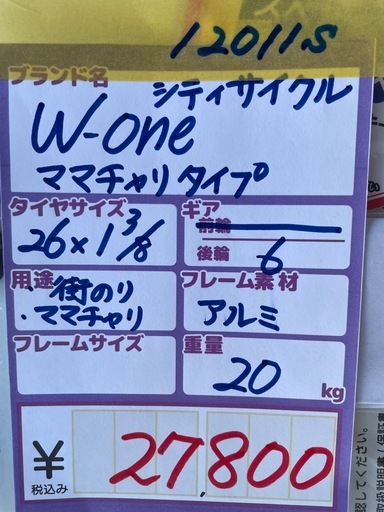 12011S
ブランド名 シティサイクル
W-one
ママチャリタイプ
タイヤサイズ ギア
26×1 3/8
前輪
後輪 6
用途 フレーム素材
・街のり
・ママチャリ
アルミ
フレームサイズ 重量
20 kg
¥ 27,800
税込み
してください。